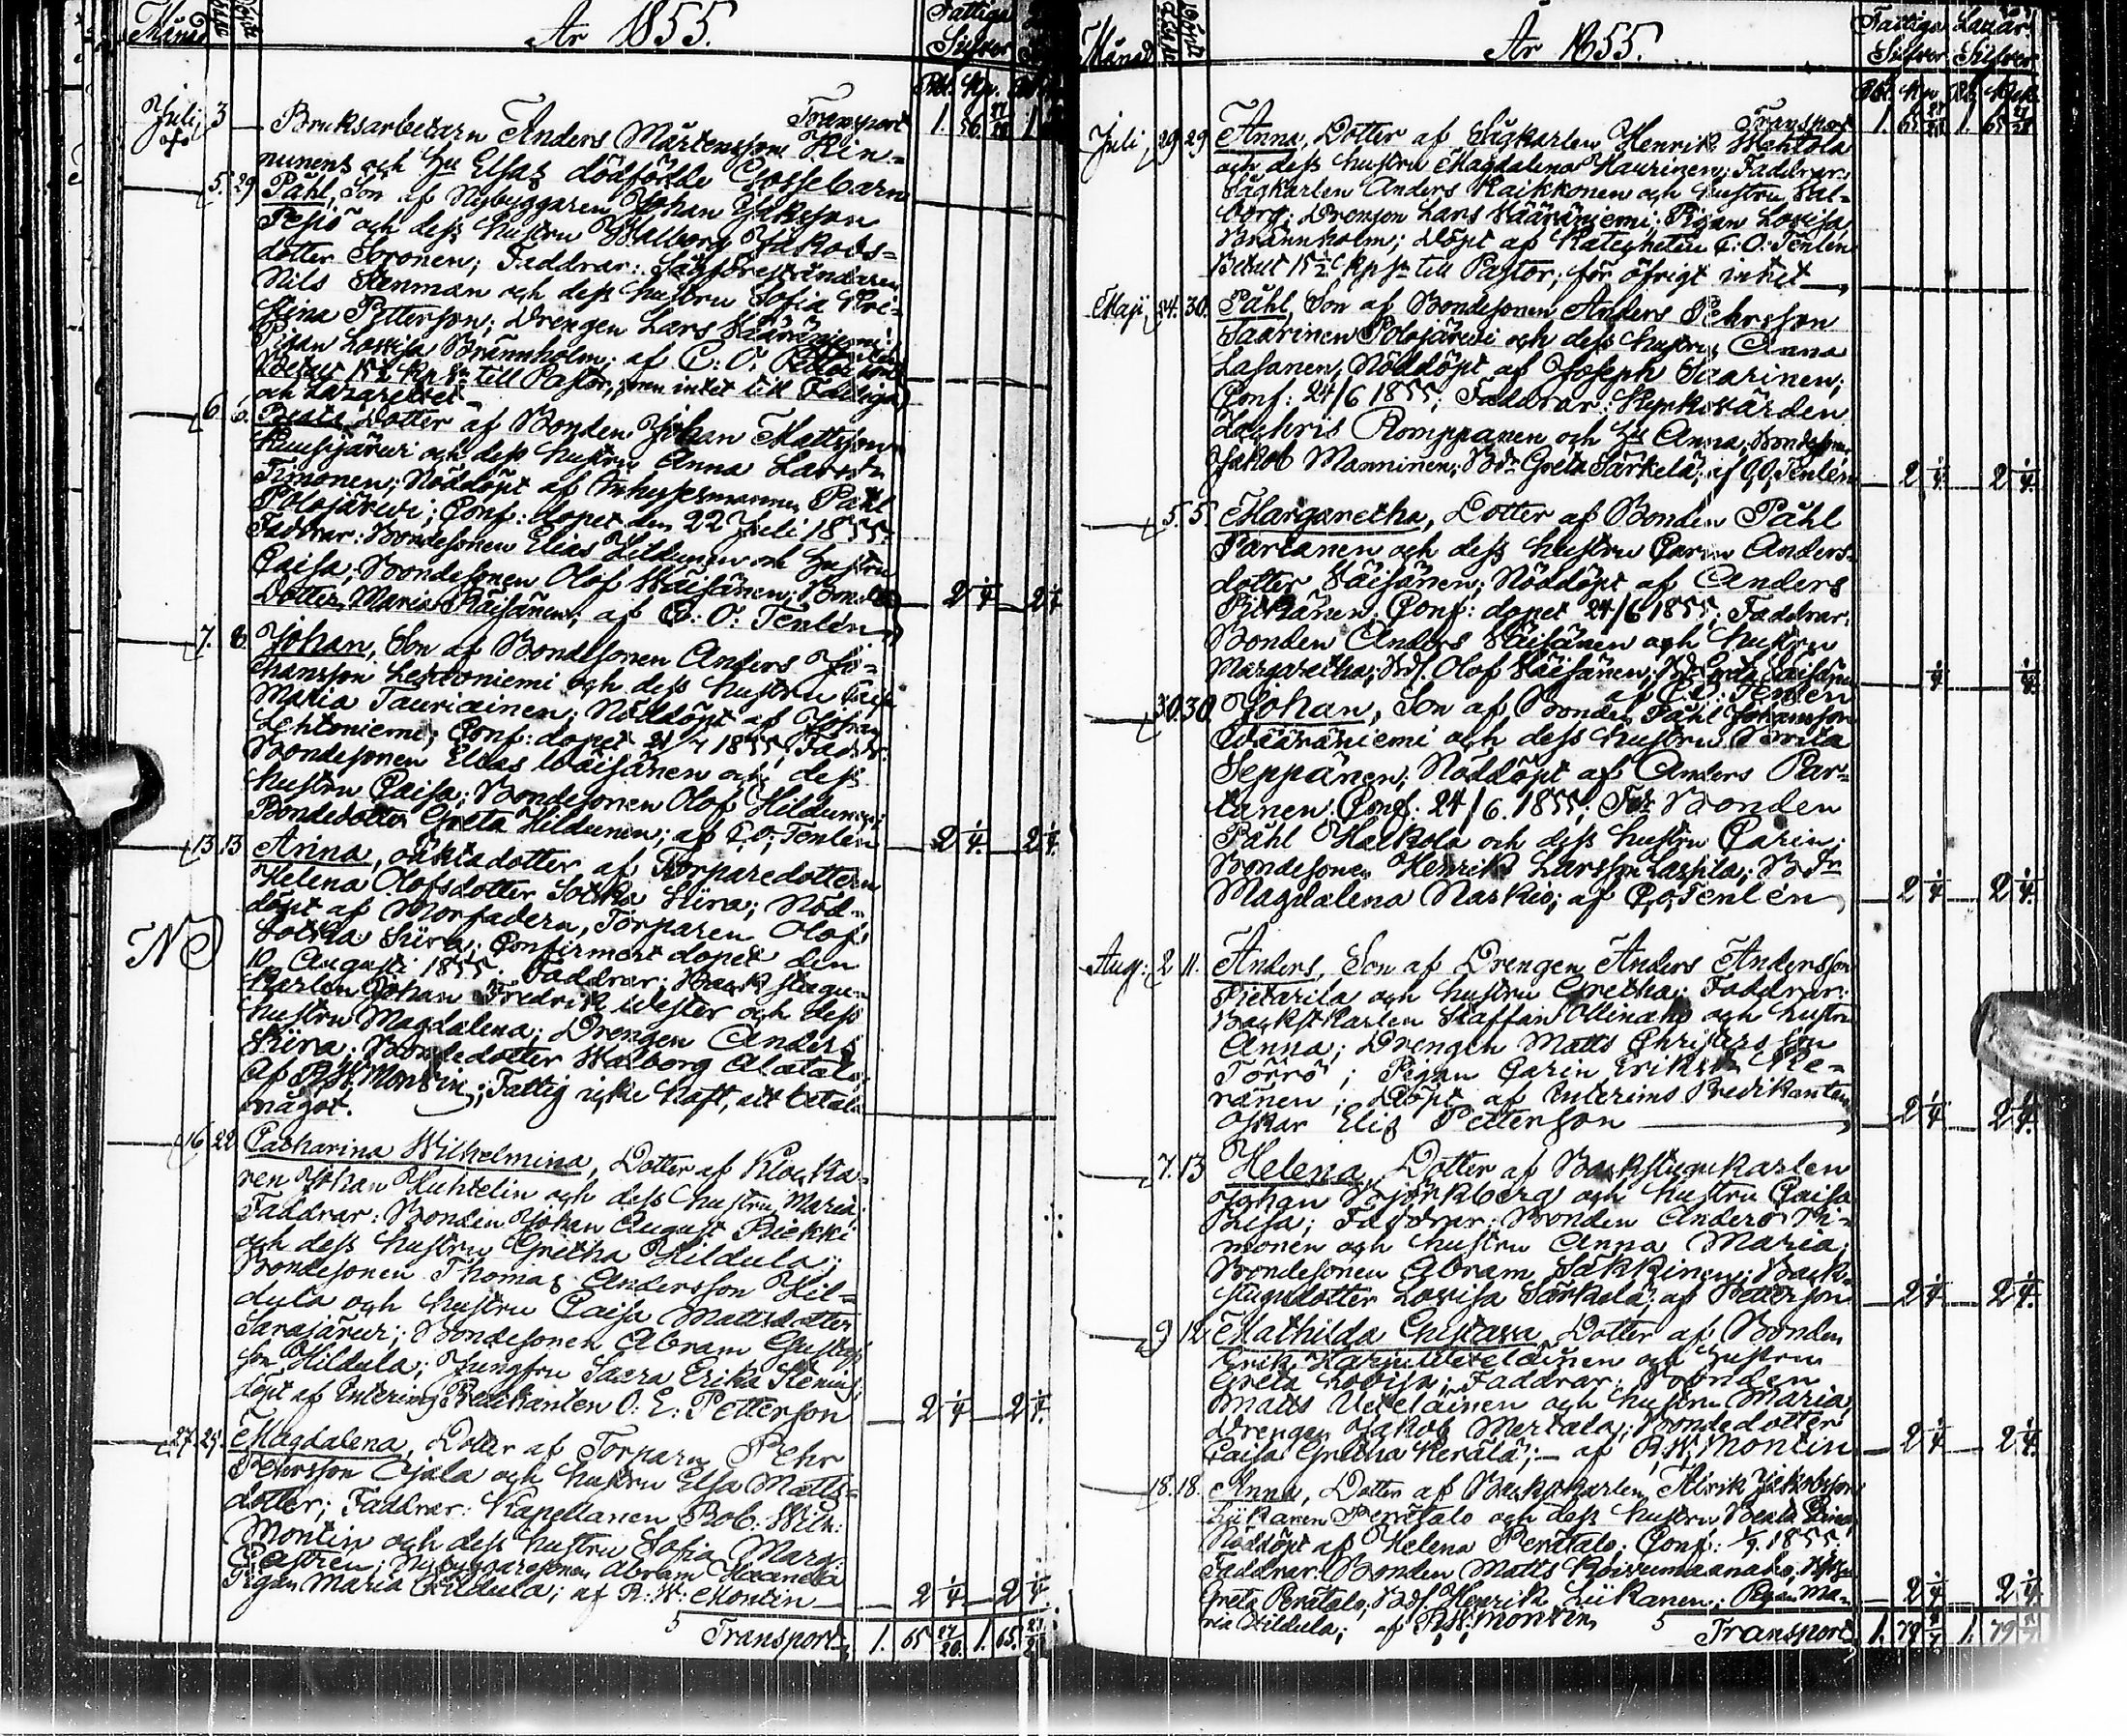 Månad
År 1855.
Fattiga
Silfver
Rbl. Kp.
Transport 1. 56. 27/28 1.
Juli 3 Bruksarbetarn Anders Mårtensson Kin-
nunens och Hu Elsas dödfödde Gossebarn
5. 29 Påhl, Son af Nybyggaren Johan Johansson
Pesiö och dess hustru Walborg Jakobs-
dotter Soronen; Faddrar: Sågförestundaren
Nils Stenman och dess hustru Sofia Chri-
stina Petterson; Drengen Lars Wääräniemi;
Pigan Lovisa Brännholm; af C. O.
Betalt 15 1/2 Kp Sr till Pastor, men intet till Fattiga
och Lazarettet
6. 6. Beata, Dotter af Bonden Johan Mattsson
Kuusijärwi och dess hustru Anna Larsdr
Timonen; Nöddöpt af Inhysesmannen Påhl
Polojärwi; Conf: dopet den 22 Juli 1855.
Faddrar: Bondesonen Elias Hildunen och Hustru
Caisa; Bondesonen Olof Wäisänen; Bonde
Dotter Maria Räisänen; af C. O. Tenlén 2 1/4 2 1/4
7. 8. Johan, Son af Bondesonen Anders Jo-
hansson Lehtoniemi och dess hustru Caisa
Maria Tauriainen; Nöddöpt af Johan
Lehtoniemi; Conf: dopet 21/7 1855; Faddr:
Bondesonen Elias Wäisänen och dess
hustru Caisa; Bondesonen Olof Hildunen;
Bondedotter Greta Hildunen; af C. O. Tenlén 2 1/4 2 1/4
13. 13 Anna, oäkta dotter af Torparedottern
Helena Olofsdotter Sotka Siira; Nöd-
döpt af Morfadern, Torparen Olof
Sotka Siira; Confirmert dopet den
10 Augusti 1855. Faddrar: Backstugu-
karlen Johan Fredrik Wester och dess
hustru Magdalena; Drengen Anders
Siira; Bondedotter Walborg Alatalo;
af R. W. Montin; Fattig icke haft, att betala
något.
16 22 Catharina Wilhelmina, Dotter af Klocka-
ren Johan Huhtelin och dess hustru Maria;
Faddrar: Bonden Johan August Riekki
och dess hustru Gretha Hildula;
Bondesonen Thomas Andersson Hil-
dula och hustru Caisa Mattsdotter
Sarajärwi; Bondesonen Abram Gustafs-
son Hildula; Jungfru Saara Erika Fleming;
döpt af Interims Predikanten O. E. Petterson 2 1/4 2 1/4
27 29. Magdalena, Dotter af Torparn Pehr
Pehrsson Ojala och hustru Elsa Matts-
dotter; Faddrar: Kapellanen Rob: Wilh:
Montin och dess hustru Sofia Marg:
Castrén; Nybyggaresonen Abram Haanela
Pigan Maria Hildula; af R. W. Montin 2 1/4 2 1/4
5 Transport 1. 65 27/28 1. 65.
Månad
År 1855.
Fattiga Lazar:
Silfver Silfver
Transport 1. 65 27/28 1. 65 27/28
Juli 29 29 Anna, Dotter af Sågkarlen Henrik Mehtola
och dess hustru Magdalena Haurinen; Faddrar:
Sågkarlen Anders Kaikkonen och hustru Wal-
borg; Drengen Lars Wääräniemi; Pigan Lovisa
Brännholm; Döpt af Katecheten C. O. Tenlén
Betalt 15 1/2 Kp Sr till Pastor; för öfrigt intet
Maji 24. 30. Påhl, Son af Bondesonen Anders Pehrsson
Saarinen Polojärwi och dess hustru Anna
Lasanen; Nöddöpt af Joseph Saarinen;
Conf: 24/6 1855; Faddrar: Kyrkovärden
Zachris Romppanen och Hu Anna; Bondesonen
Jakob Manninen; Bdr Greta Särkelä; af C. O. Tenlén 2 1/4 2 1/4
5. 5. Margaretha, Dotter af Bonden Påhl
Partanen och dess hustru Carin Anders-
dotter Väisänen; Nöddöpt af Anders
Pitkänen; Conf: dopet 24/6 1855; Faddrar:
Bonden Anders Väisänen och hustru
Margaretha; Bds. Olof Väisänen; Bdr Greta Väisänen
af C. O. Tenlén 1/4 1/4
30. 30. Johan, Son af Bonden Påhl Johansson
Wääräniemi och dess hustru Brita
Seppänen; Nöddöpt af Anders Par-
tanen; Conf: 24/6. 1855; Fdr Bonden
Påhl Halkola och dess hustru Carin;
Bondesonen Henrik Larsson Lassila; B Dr
Magdalena Naskio; af C. O. Tenlén 2 1/4 2 1/4
Aug: 2 11. Anders, Son af Drengen Anders Andersson
Pietarila och hustru Gretha; Faddrar:
Backst.karlen Staffan Ollinaho och hustru
Anna; Drengen Matts Christersson
Törrö; Pigan Carin Eriksdr Ke-
ränen; Döpt af Interims Predikanten
Oskar Elis Petterson 2 1/4 2 1/4
7. 13 Helena, Dotter af Backstugukarlen
Johan Björkberg och hustru Caisa
Brisa; Faddrar: Bonden Anders Ti-
monen och hustru Anna Maria;
Bondesonen Abram Säkkinen; Back-
stugudotter Lovisa Särkelä; af Petterson 2 1/4 2 1/4
9 12 Mathilda Gustava, Dotter af Bonden
Erik Harju Weteläinen och hustru
Greta Lovisa; Faddrar: Bonden
Matts Veteläinen och hustru Maria;
Drengen Jakob Mertala; Bondedotter
Caisa Gretha Kerälä; af R. W. Montin 2 1/4 2 1/4
18. 18. Anna, Dotter af Backst.karlen Henrik Jakobsson
Liikanen Perätalo och dess hustru Beata Stina
Nöddöpt af Helena Perätalo; Conf: 1/9. 1855.
Faddrar: Bonden Matts Koivumaanaho, Hustru
Greta Perätalo; Bds. Henrik Liikanen; Pigan Ma-
ria Hildula; af R. W. Montin 2 1/4 2 1/4
5 Transport 1. 79 1. 79